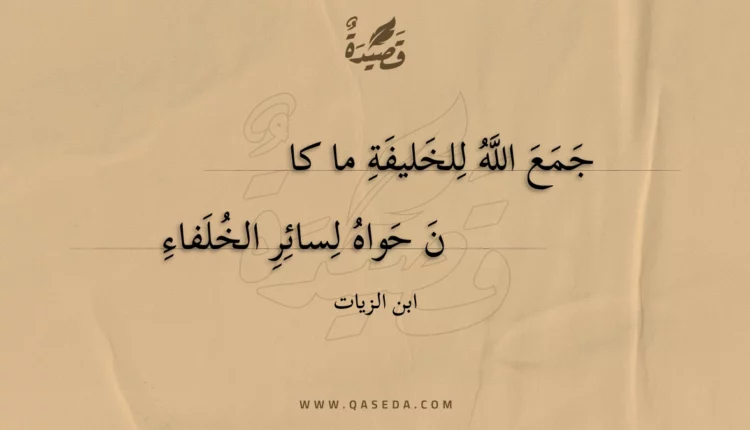 قَصِيدَةٌ
جَمَعَ اللَّهُ لِلخَليفَةِ ما كا
نَ حَواهُ لِسائِرِ الخُلَفاءِ
ابن الزيات
WWW.QASEDA.COM